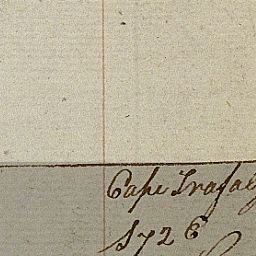 Cape Trafalg
S 72 E